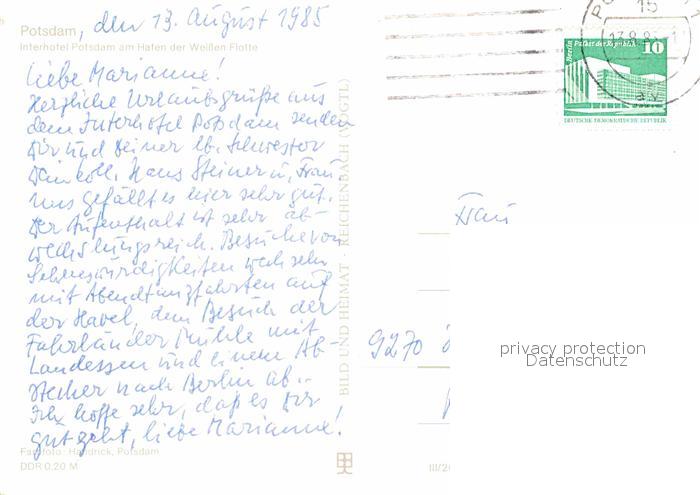 Potsdam, den 13. August 1985
Interhotel Potsdam am Hafen der Weißen Flotte
Liebe Marianne!
Herzliche Urlaubsgrüße aus
dem Interhotel Potsdam senden
Dir und Deiner lb. Schwester
Dein Koll. Hans Steiner u. Frau
Uns gefällt es hier sehr gut.
Der Aufenthalt ist sehr ab-
wechslungsreich. Besuche von
Sehenswürdigkeiten wechseln
mit Abendtanzfahrten auf
der Havel, dem Besuch der
Fahrländer Mühle mit
Landessen und einem Ab-
stecher nach Berlin ab..
Ich hoffe sehr, daß es Dir
gut geht, liebe Marianne!
Farbfoto: Handrick, Potsdam
DDR 0,20 M
BILD UND HEIMAT · REICHENBACH (VOGTL)
III/26
15
13.8.8
Berlin Palast der Republik
10
DEUTSCHE DEMOKRATISCHE REPUBLIK
Frau
9270
privacy protection
Datenschutz